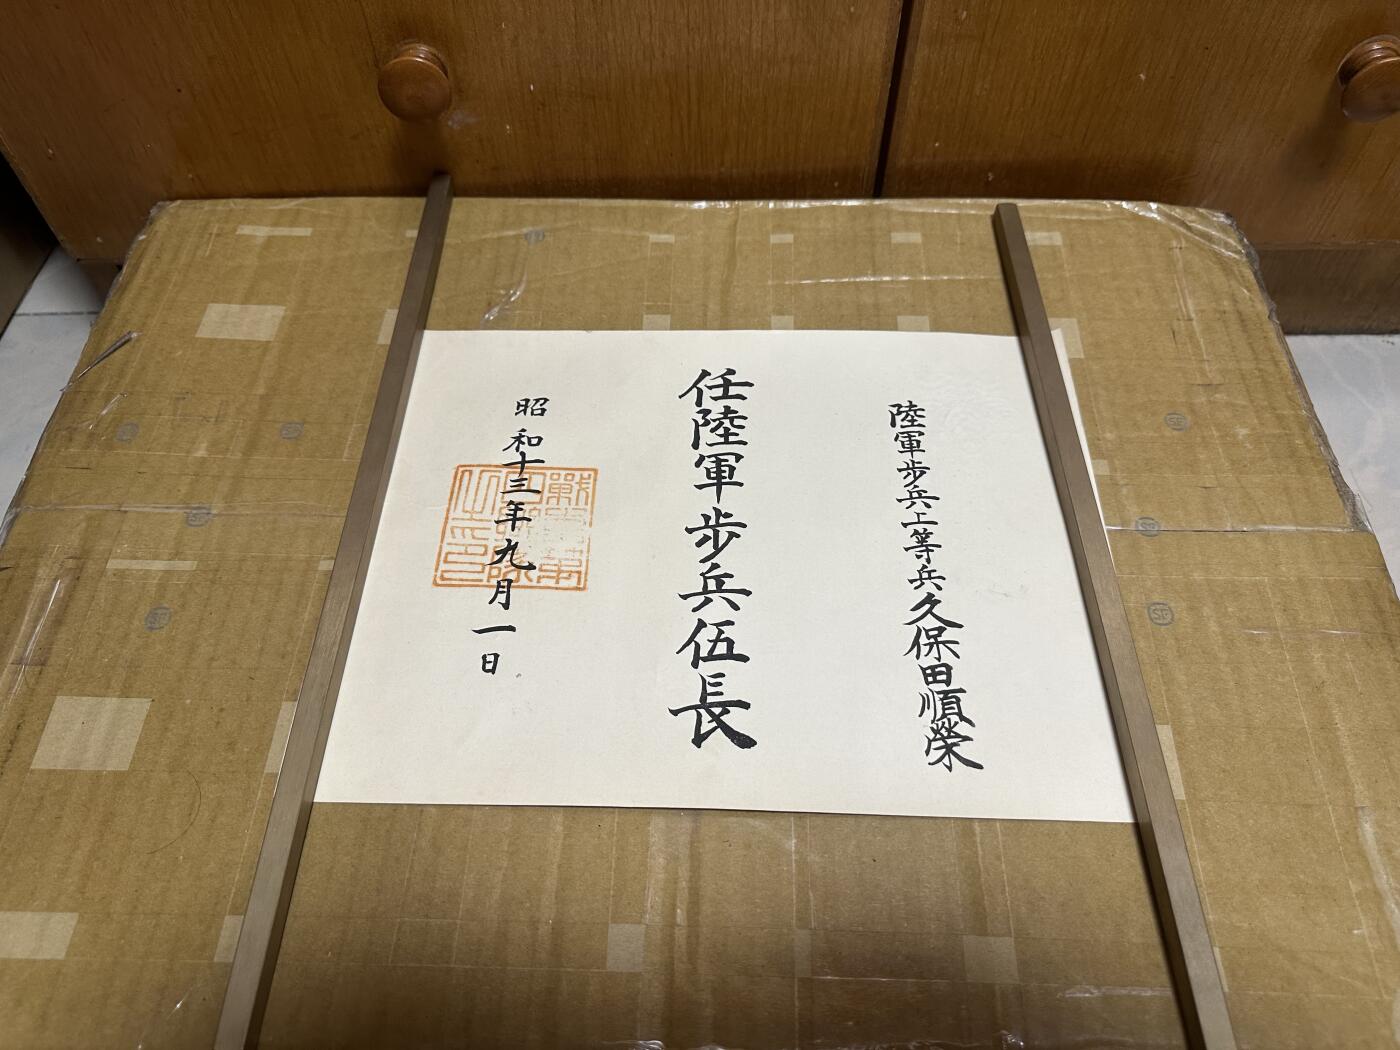 陸軍歩兵上等兵久保田順榮
任陸軍歩兵伍長
昭和十三年九月一日